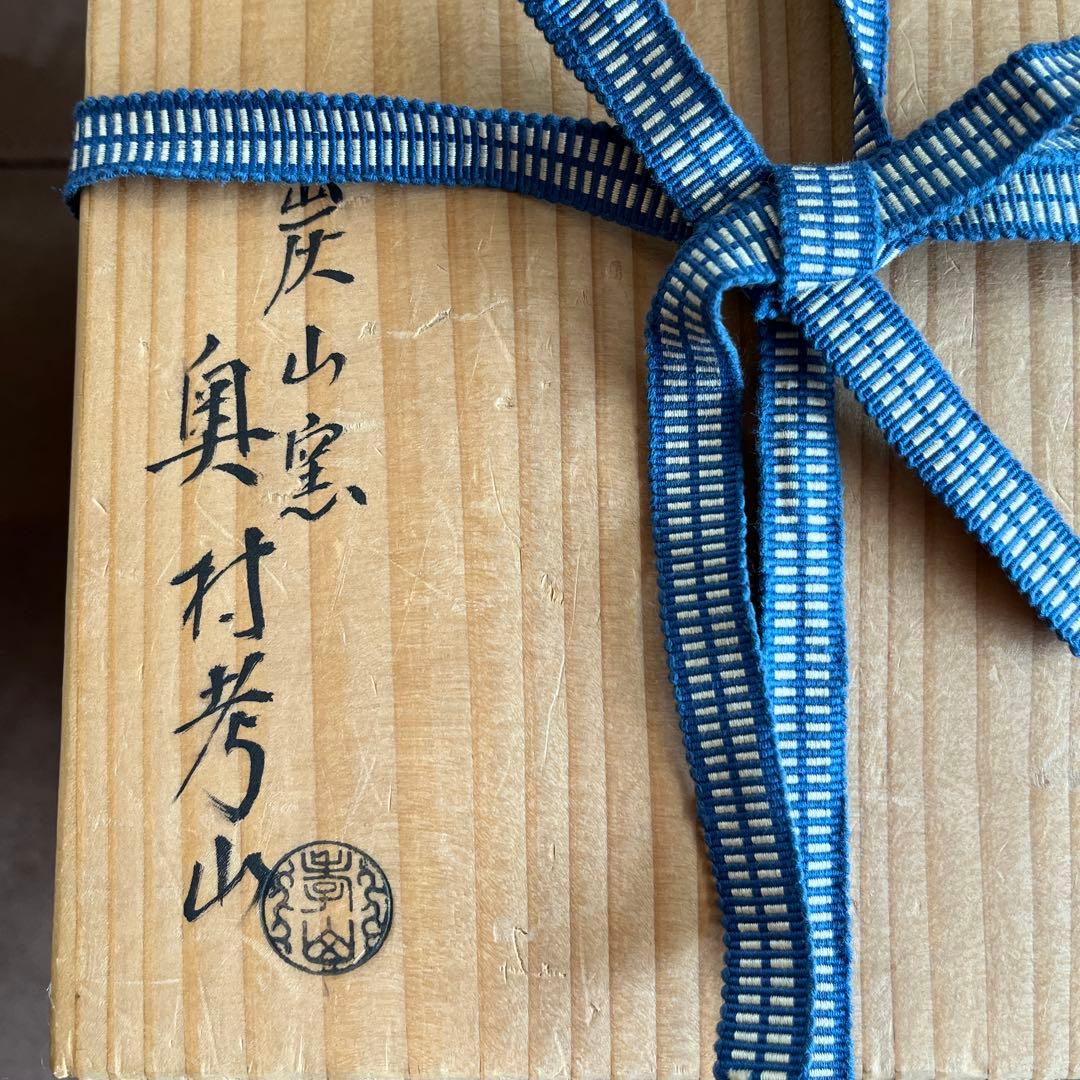 炭山窯
奥村考山